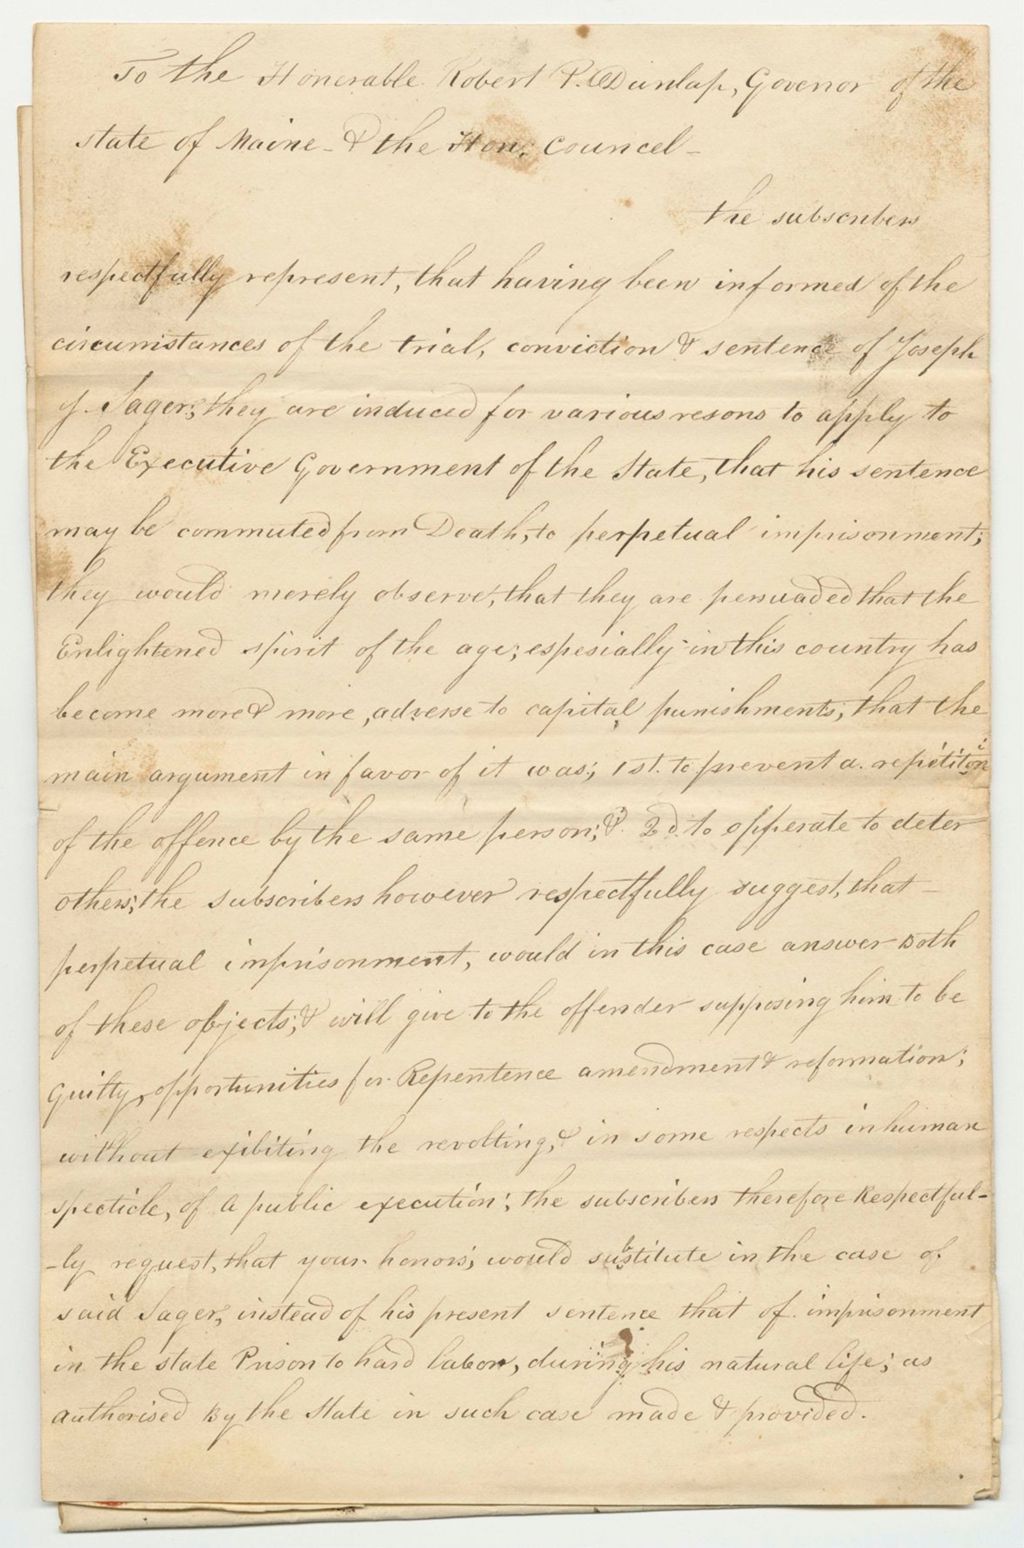 To the Honerable Robert P. Dunlap, Govenor of the
state of Maine - & the Hon; Councel -
the subscribers
respectfully represent, that having been informed of the
circumstances of the trial, conviction & sentence of Joseph
J. Sager; they are induced for various resons to apply to
the Executive Government of the State, that his sentence
may be commuted from Death, to perpetual imprisonment;
they would merely observe, that they are persuaded that the
Enlightened spirit of the age; espesially in this country has
become more & more, adverse to capital punishments; that the
main argument in favor of it was; 1st. to prevent a. repitition
of the offence by the same person; & 2d. to opperate to deter
others; the subscribers however respectfully suggest, that -
perpetual imprisonment, would in this case answer Both
of these objects; & will give to the offender supposing him to be
guilty, opportunities for Repentence amendment & reformation;
without exibiting the revolting, & in some respects inhuman
specticle, of a public execution; the subscribers therefore Respectful-
-ly request, that your honors; would substitute in the case of
said Sager, instead of his present sentence that of imprisonment
in the state Prison to hard labor, during his natural life; as
authorised By the State in such case made & provided.